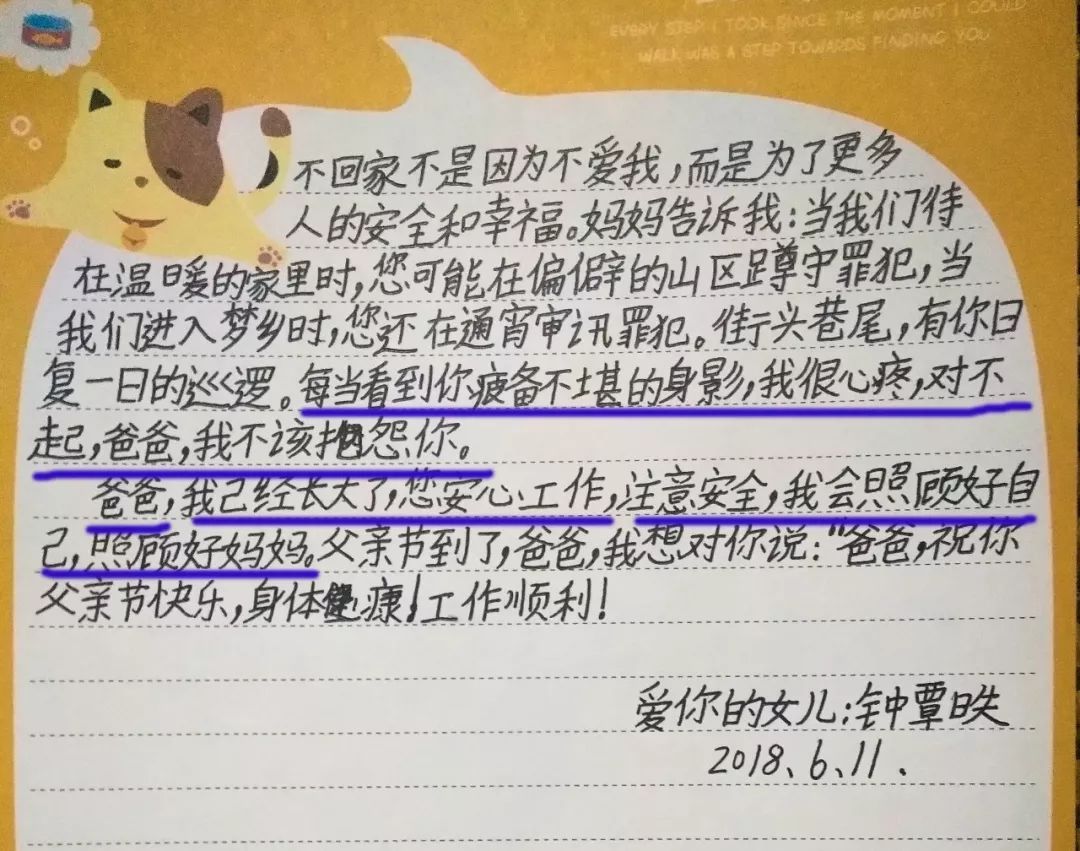 EVERY STEP I TOOK SINCE THE MOMENT I COULD
WALK WAS A STEP TOWARDS FINDING YOU
不回家不是因为不爱我，而是为了更多
人的安全和幸福。妈妈告诉我：当我们待
在温暖的家里时，您可能在偏僻的山区蹲守罪犯，当
我们进入梦乡时，您还在通宵审讯罪犯。街头巷尾，有你日
复一日的巡逻。每当看到你疲备不堪的身影，我很心疼，对不
起，爸爸，我不该抱怨你。
爸爸，我己经长大了，您安心工作，注意安全，我会照顾好自
己，照顾好妈妈。父亲节到了，爸爸，我想对你说：“爸爸，祝你
父亲节快乐，身体健康！工作顺利！
爱你的女儿：钟覃昳
2018、6、11．